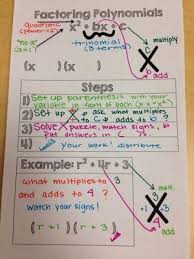 Factoring Polynomials
quadratic (power=2)
x² + bx + c
"no a" (a=1)
trinomial (3 terms)
multiply
c
X
b add
(x )(x )
Steps
1) Set up parenthesis with your variable in front of each (x x=x²)
2) Set up X & ask what multiplies to C & adds to b?
3) Solve X puzzle, match signs, & put answers in ( )
4) your work! distribute
Example: r² + 4r + 3
what multiplies to 3 and adds to 4?
Watch your signs!
mult.
3
1 3
4
add
(r + 1)(r + 3)